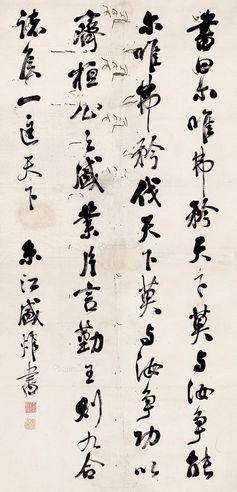 書曰尔唯弗矜天下莫与汝争能
尔唯弗伐天下莫与汝争功以
齊桓公之盛業片言勤王則九合
諸侯一匡天下 江盛 書